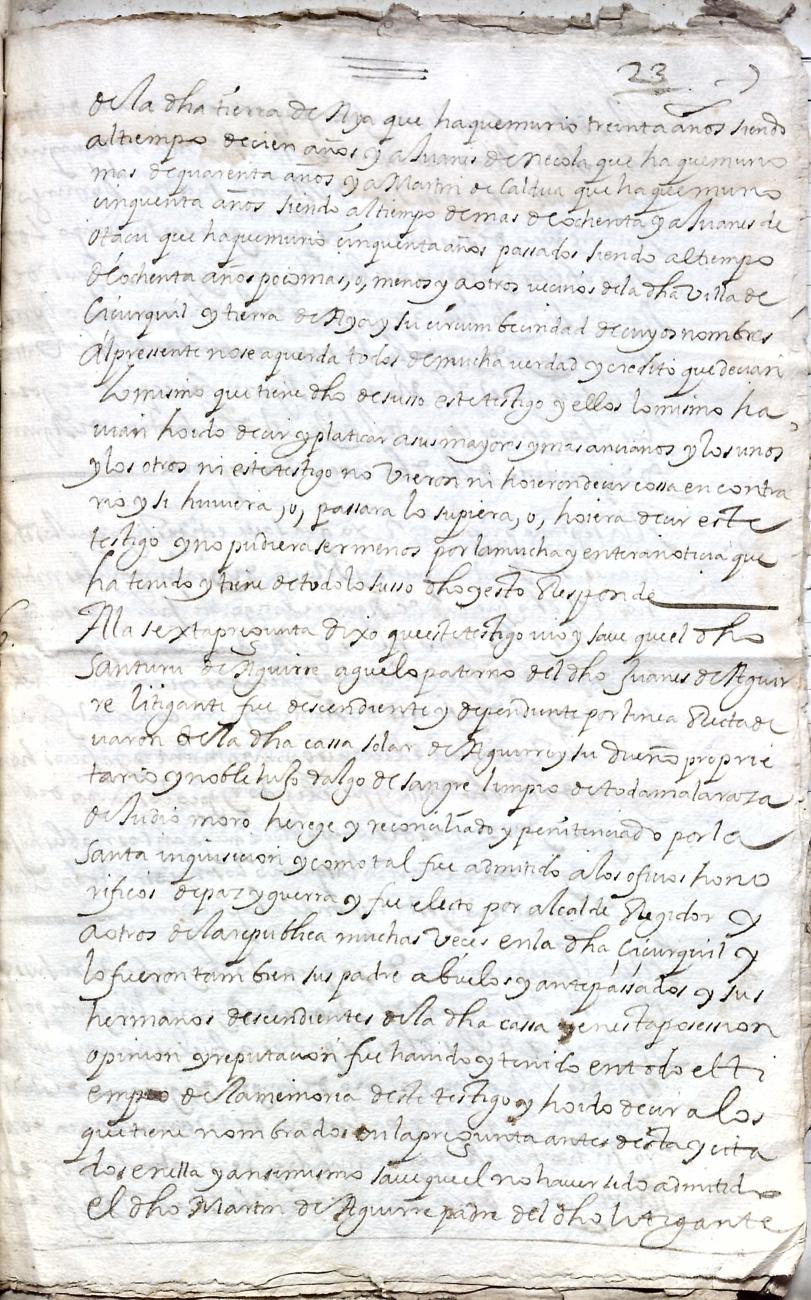 23
de la dha tierra de Aya que ha que murio treinta años siendo
al tiempo de cien años y a Juanes de Recola que ha que murio
mas de quarenta años y a Martin de Caldua que ha que murio
cinquenta años siendo al tiempo de mas de ochenta y a Juanes de
otacu que ha que murio cinquenta años passados siendo al tiempo
de ochenta años poco mas, o, menos y a otros vecinos de la dha Villa de
Cicurquil y tierra de Aya y su circumbecindad de cuyos nombres
Al pressente no se aquerda todos de mucha verdad y credito que decian
lo mismo que tiene dho de susso este testigo y ellos lo mismo ha
vian hoido decir y platicar a sus mayores y mas ancianos y los unos
y los otros ni este testigo no vieron ni hoieron decir cossa en contra
rio y si huviera, o, passara lo supiera, o, hoiera decir este
testigo y no pudiera ser menos por la mucha y entera noticia que
ha tenido y tiene de todo lo susso dho y esto Responde
6.
A la sexta pregunta dixo que este testigo vio y save que el dho
Santuru de Aguirre aguelo paterno del dho Juanes de Aguir
re litigante fue descendiente y dependiente por linea Recta de
varon de la dha cassa solar de Aguirre y su dueño proprie
tario y noble hijo dalgo de sangre limpio de toda mala raza
de Judio moro herege y reconciliado y penitenciado por la
Santa inquisicion y como tal fue admitido a los oficios hono
rificos de paz y guerra y fue electo por alcalde Regidor y
a otros de la republica muchas veces en la dha Cicurquil y
lo fueron tambien sus padre abuelos y antepassados y sus
hermanos descendientes de la dha cassa y en esta possession
opinion y reputacion fue havido y tenido en todo el ti
empo de la memoria deste testigo y hoido decir a los
que tiene nombrados en la pregunta antes desta y cita
dos en ella y ansimismo save que el no haver sido admitido
el dho Martin de Aguirre padre del dho litigante